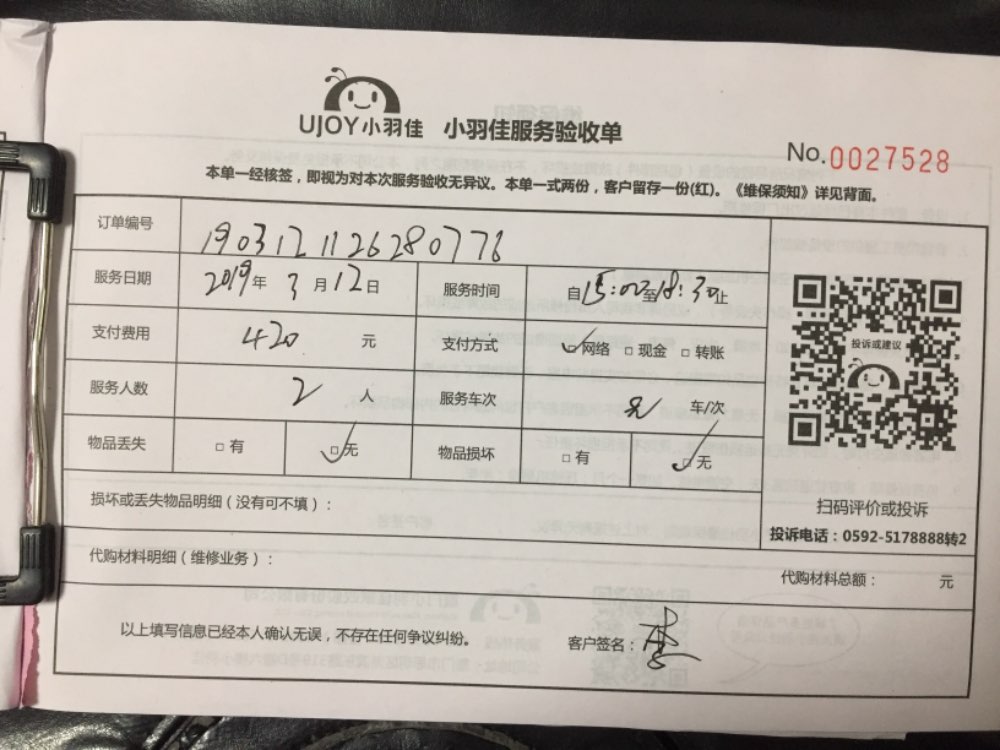 UJOY小羽佳 小羽佳服务验收单
No.0027528
本单一经核签，即视为对本次服务验收无异议。本单一式两份，客户留存一份(红)。《维保须知》详见背面。
订单编号 190312112628077６
服务日期 2019年 3月12日 服务时间 自15:00至18:30止
支付费用 420 元 支付方式 网络 现金 转账
投诉或建议
服务人数 2 人 服务车次 车/次
物品丢失 有 无 物品损坏 有 无
损坏或丢失物品明细（没有可不填）：
扫码评价或投诉
投诉电话：0592-5178888转2
代购材料明细（维修业务）：
代购材料总额： 元
以上填写信息已经本人确认无误，不存在任何争议纠纷。 客户签名：